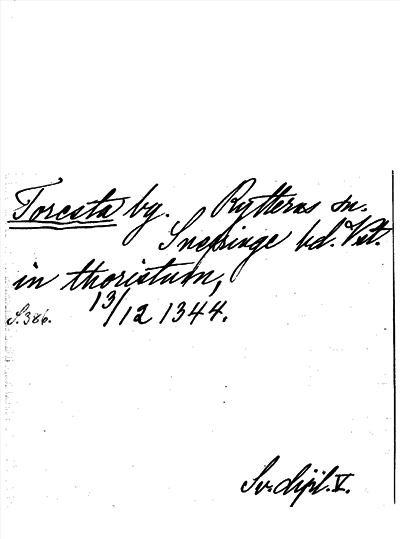 Toresta by. Rytterns sn.
Snevringe hd. Vstm.
in thoristum,
S. 386. 13/12 1344.
Sv. dipl. V.